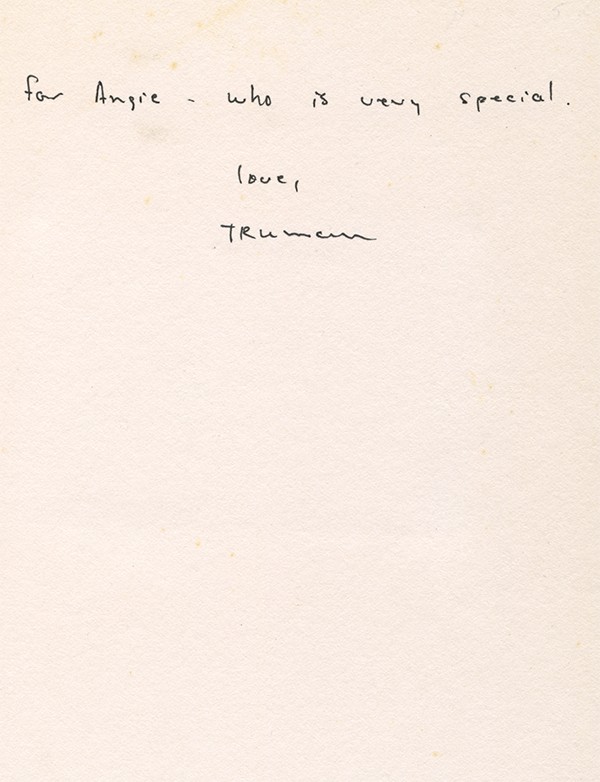 for Angie - who is very special.
love,
TRuman